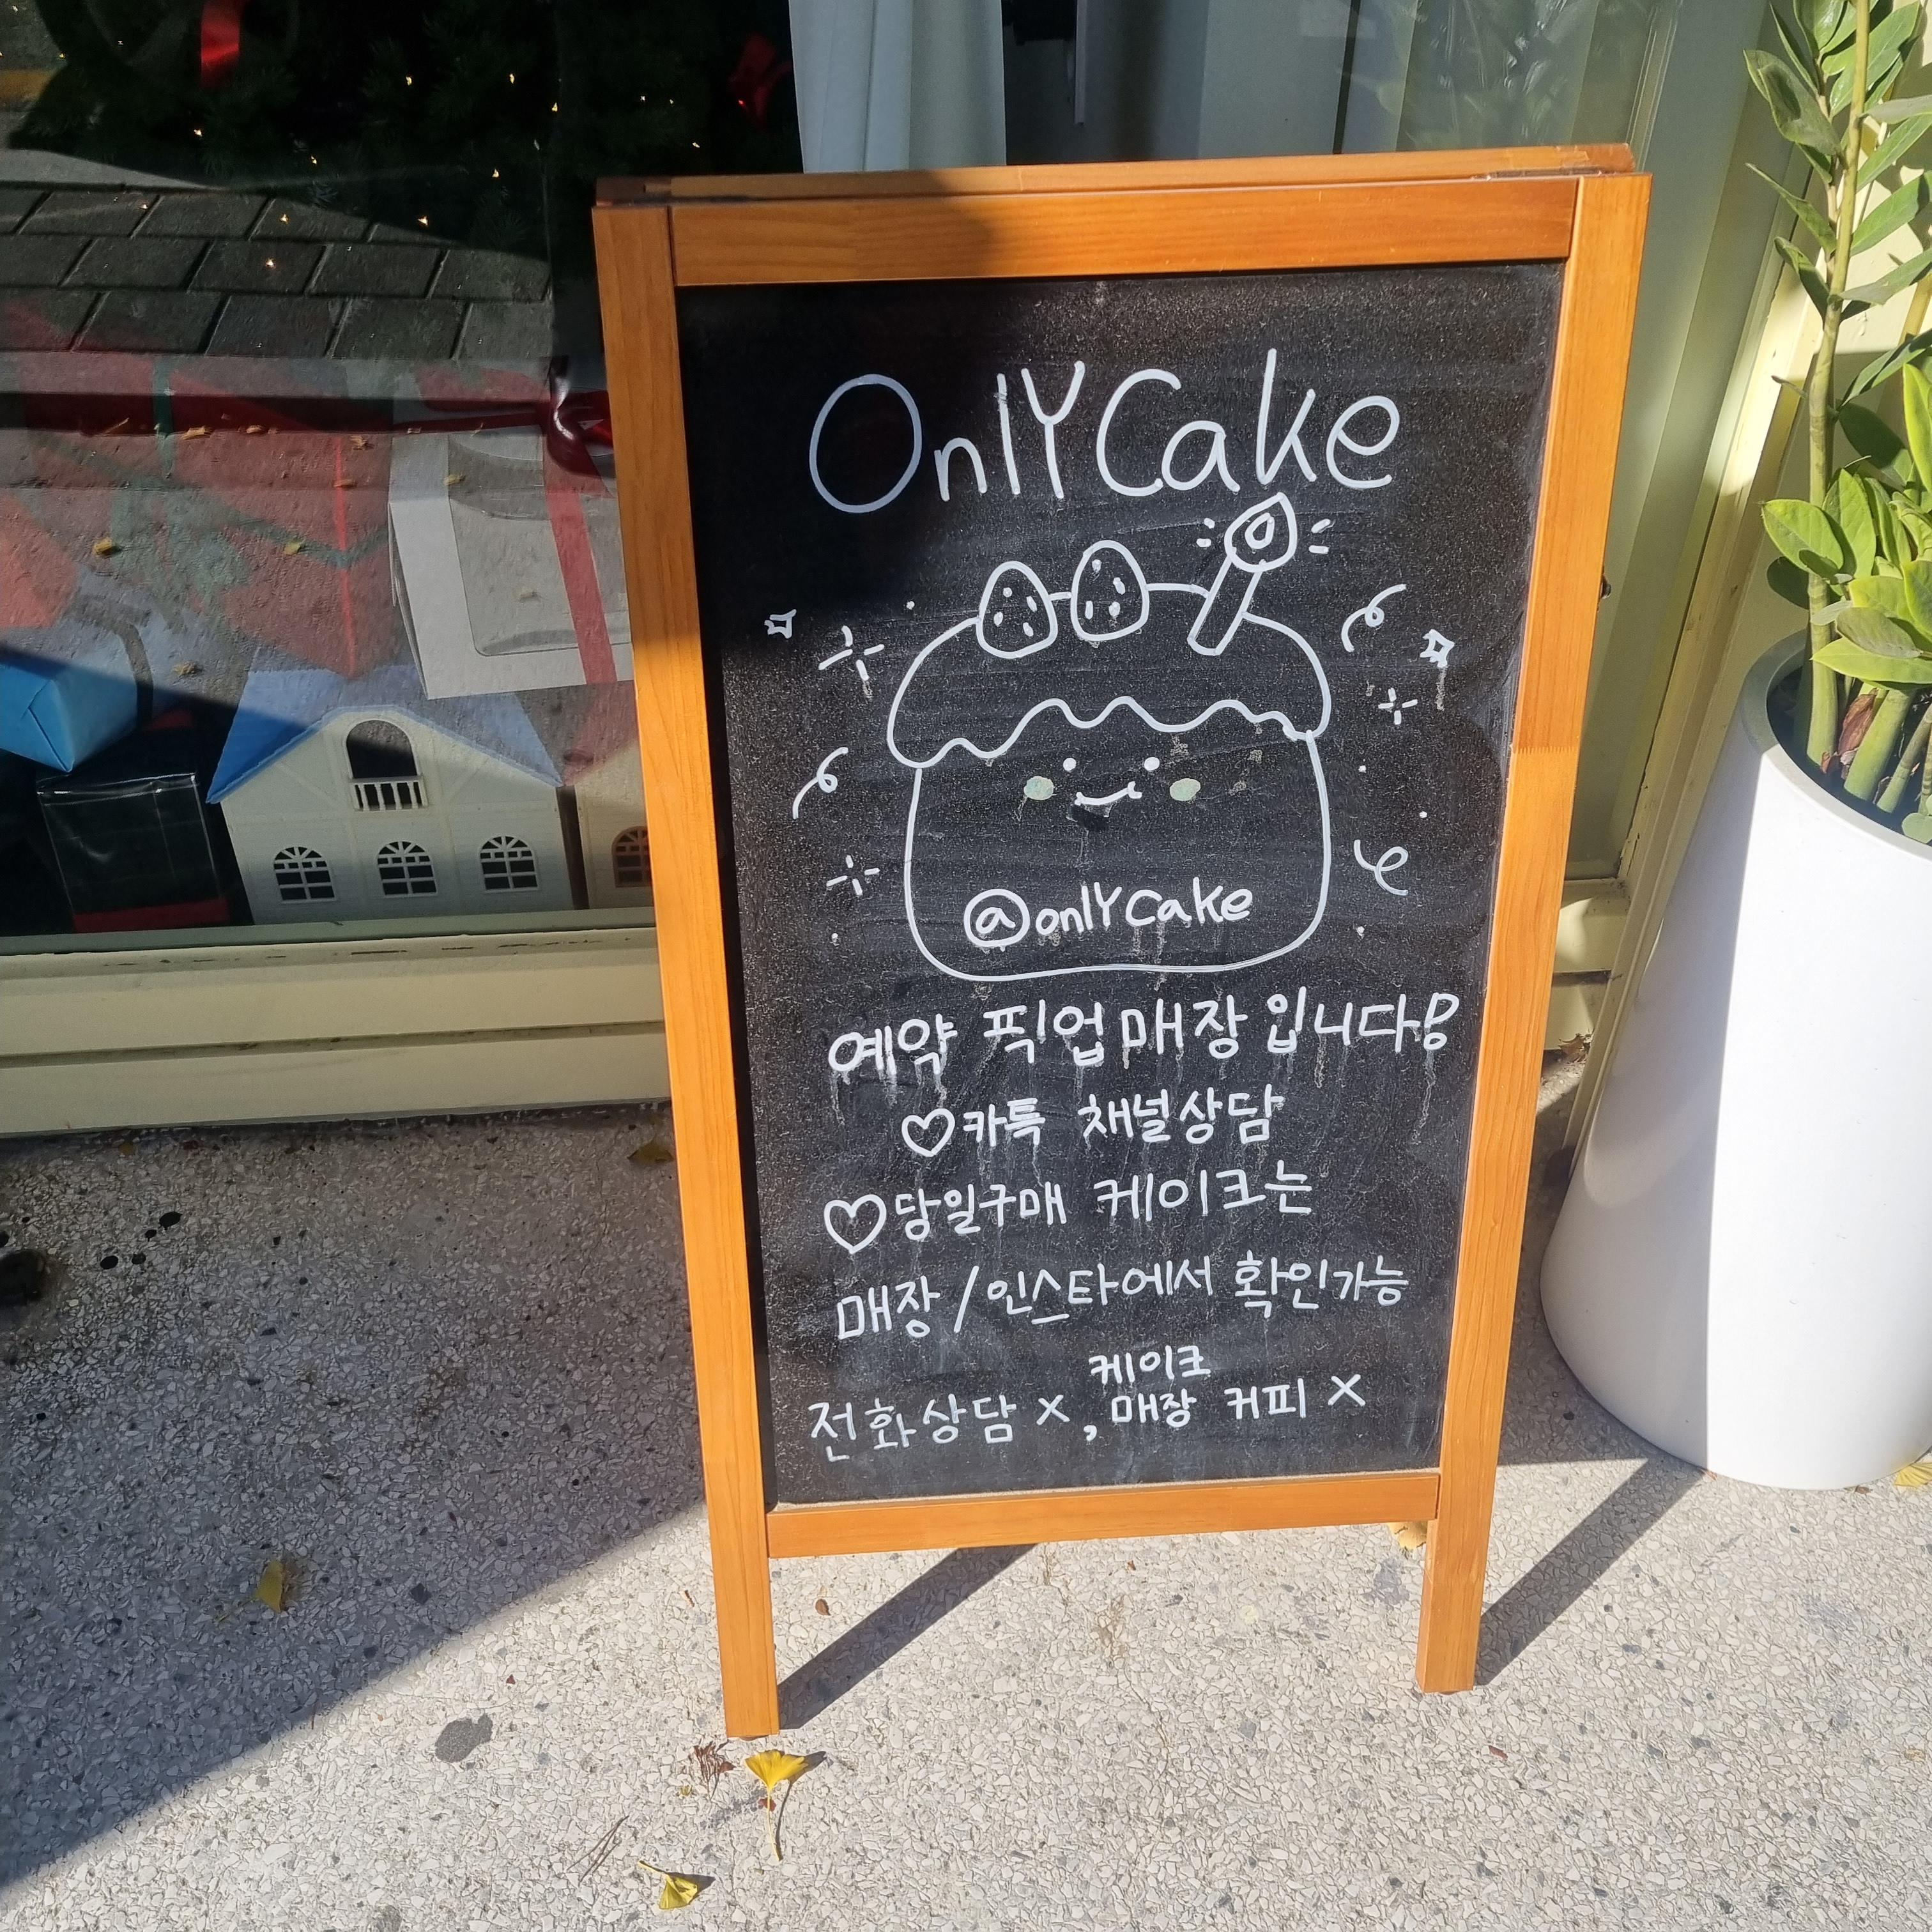 OnlYCake
@onlYcake
예약 픽업매장입니다!
♡카톡 채널상담
♡당일구매 케이크는
매장/인스타에서 확인가능
케이크
전화상담 x, 매장 커피 x